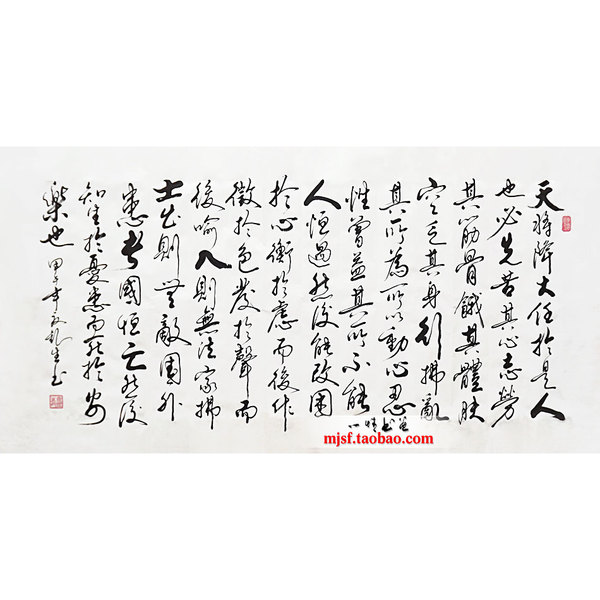 天將降大任於是人
也必先苦其心志勞
其筋骨餓其體膚
空乏其身行拂亂
其所為所以動心忍
性曾益其所不能
人恒過然後能改困
於心衡於慮而後作
徵於色發於聲而
後喻入則無法家拂
士出則無敵國外
患者國恒亡然後
知生於憂患而死於安
樂也
mjsf.taobao.com